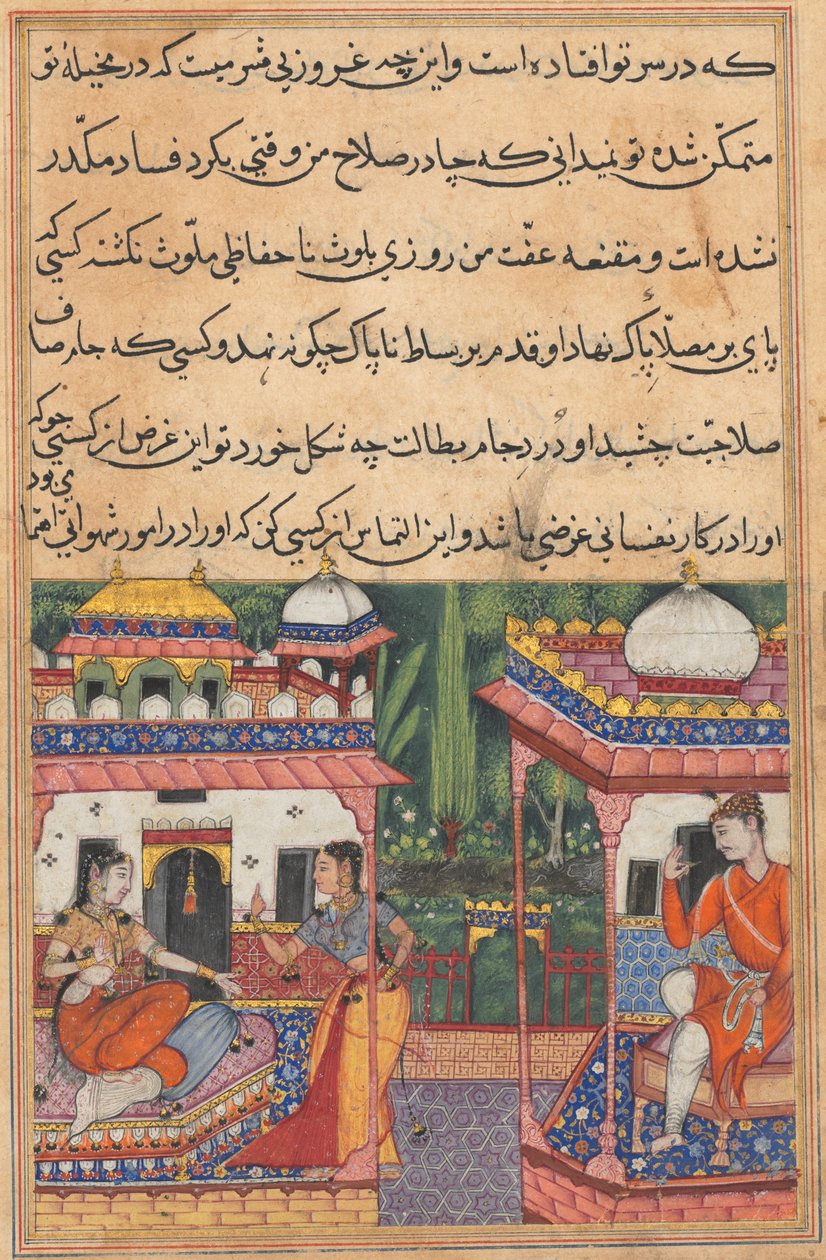 که در سر تو افتاده است و این چه غروزی قسرمیست که در مخیلهٔ تو
متمکّن شده تو نمیدانی که چادر صلاح من وقتی بکرد فساد مکدّر
نشده است و مقنعه عفّت من روزی بلوث ناحفاظی ملوّث نکشته کسی که
پای بر مصلّا پاک نهاد او قدم بر بساط ناپاک چکونه نهد و کسی که جام صاف
صلاحیّت چشید او دُردِ جام بطالت چه شکل خورد تو این غرض از کسی جو که
او را در کار نفسانی غرضی باشد و این التماس از کسی کن که او را در امور شهوانی اهتما می بود